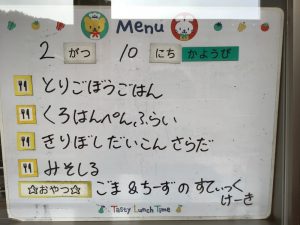 Menu
2 がつ 10 にち かようび
とりごぼうごはん
くろはんぺんふらい
きりぼしだいこん さらだ
みそしる
☆おやつ☆ ごま&ちーずの すてぃっく
けーき
Tasty Lunch Time